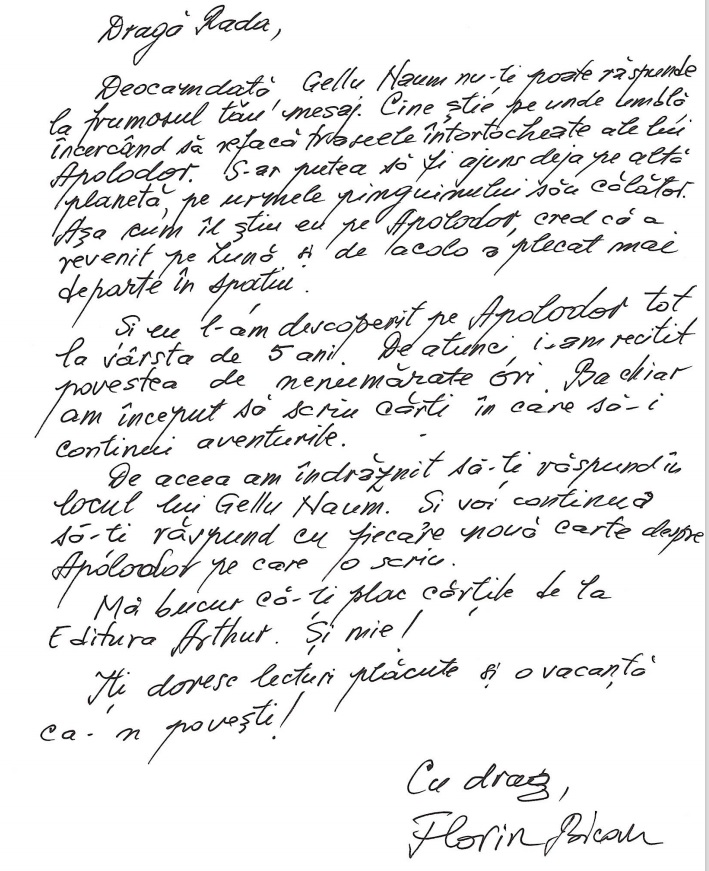 Dragă Rada,
Deocamdată Gellu Naum nu-ți poate răspunde
la frumosul tău mesaj. Cine știe pe unde umblă
încercând să refacă traseele întortocheate ale lui
Apolodor. S-ar putea să fi ajuns deja pe altă
planetă, pe urmele pinguinului său călător.
Așa cum îl știu eu pe Apolodor, cred că a
revenit pe Lună și de acolo a plecat mai
departe în spațiu.
Și eu l-am descoperit pe Apolodor tot
la vârsta de 5 ani. De atunci, i-am recitit
povestea de nenumărate ori. Ba chiar
am început să scriu cărți în care să-i
continui aventurile.
De aceea am îndrăznit să-ți răspund în
locul lui Gellu Naum. Și voi continua
să-ți răspund cu fiecare nouă carte despre
Apolodor pe care o scriu.
Mă bucur că-ți plac cărțile de la
Editura Arthur. Și mie!
Îți doresc lecturi plăcute și o vacanță
ca-n povești!
Cu drag,
Florin Bican